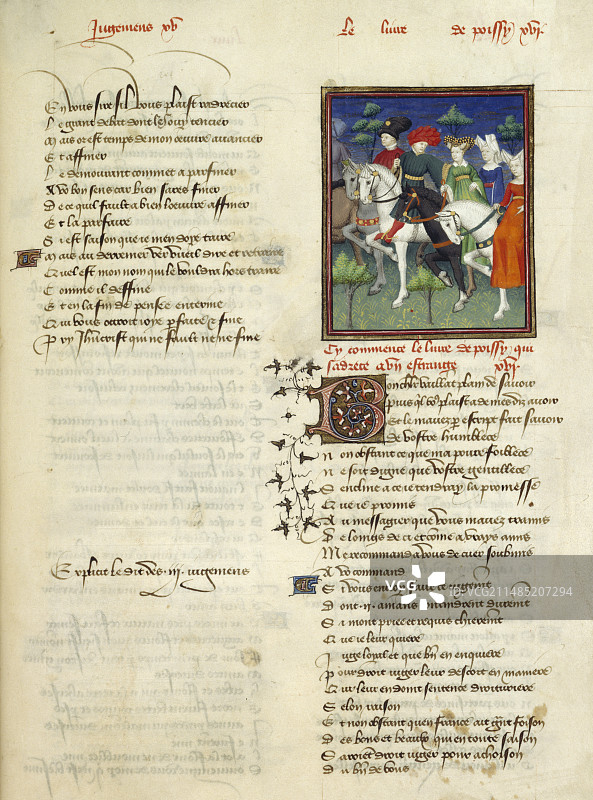 Jugemens xv
Le livre de poissy xvi
En vous sire sil vous plaist radrecier
Le grant debat dont le souy tencier
Mais or est temps de mon oeuvre avancier
Et affiner
Le demourant commet a parfiner
A vo bon sens car bien sares finer
De ce quil fault a bien loeuvre affiner
Et la parfaire
Si est saison que je men doye taire
Mais au derrenier ver vueil dire et retraire
Quel est mon nom qui le vouldra hors traire
Comme il deffine
Et en la fin de pensee enterine
Qui vous ottroit joye pfaite & fine
Pry Jhucrist qui ne fault ne ne fine
Explicit le dit des .iii. jugemens
Cy commence le livre de poissy qui
sadrece a un estrange xvi
Bon chlr vaillant plain de savoir
Puis ql vo plaist a de mes diz avoir
Et le mavez p escript fait savoir
De vostre humblece
Non obstant ce que ma povre foiblece
Ne soit digne que vostre gentillece
Sencline a ce je tendray la promesse
Que jay promis
Au messagier que vous mavez tramis
De loings de ci et come a vrays amis
Me recommand a vous de cuer soubmis
A vo command
dont .ii. amans vindrent durement
Si a mont pree et requis chierement
Que je leur quiere
Juge loyal et que bn en enquiere
Pour droit juger leur descort en maniere
Qui leur en doint sentence droituriere
Selon raison
Et non obstant quen france ait ght foison
Des bons et beaulx qui en toute saison
Saroient droit juger pour achoison
Du bn de vous
VCG
VCG.COM
ID:VCG211485207294